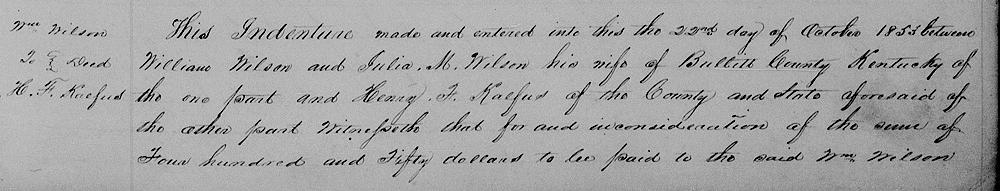 Wm Wilson
To } Deed
H. F. Kalfus
This Indenture made and entered into this the 22nd day of October 1853 between
William Wilson and Julia. M. Wilson his wife of Bullett County Kentucky of
the one part and Henry. F. Kalfus of the County and State aforesaid of
the other part Witnesseth that for and inconsideration of the sum of
Four hundred and Fifty dollars to be paid to the said Wm Wilson